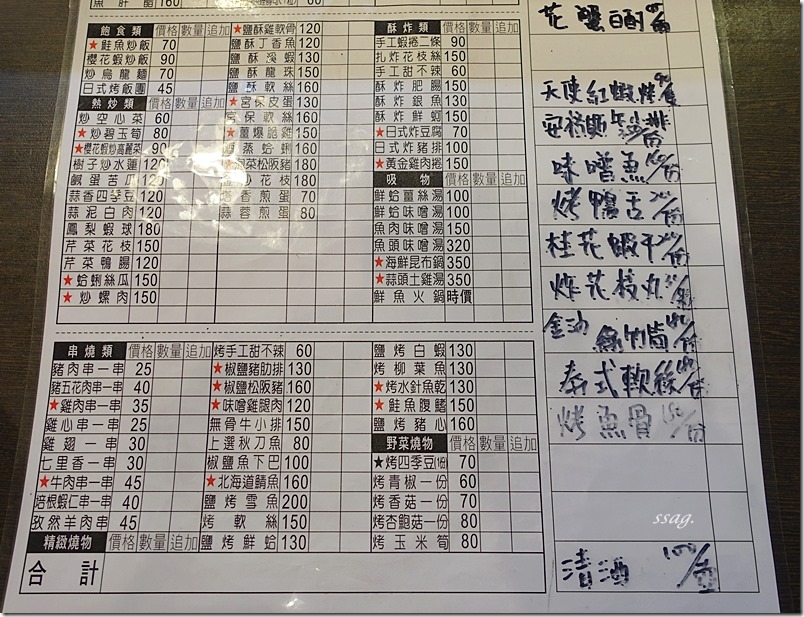 160
飽食類 價格 數量 追加
★鮭魚炒飯 70
櫻花蝦炒飯 90
炒烏龍麵 70
日式烤飯團 45
熱炒類 價格 數量 追加
炒空心菜 60
★炒碧玉筍 80
★櫻花蝦炒高麗菜 90
樹子炒水蓮 120
鹹蛋苦瓜 120
蒜香四季豆 120
蒜泥白肉 120
鳳梨蝦球 180
芹菜花枝 150
芹菜鴨腸 120
★蛤蜊絲瓜 150
★炒螺肉 150
★鹽酥雞軟骨 120
鹽酥丁香魚 120
鹽酥溪蝦 130
鹽酥龍珠 150
鹽酥軟絲 160
★宮保皮蛋 130
宮保軟絲 160
★薑爆脆雞 150
蒸蛤蜊 160
菜松阪豬 180
炒花枝 180
香煎蛋 70
蒜蓉煎蛋 80
酥炸類 價格 數量 追加
手工蝦捲二條 90
扎炸花枝絲 150
手工甜不辣 60
酥炸肥腸 150
酥炸銀魚 130
酥炸鮮蚵 150
★日式炸豆腐 70
日式炸豬排 100
★黃金雞肉捲 150
吸物 價格 數量 追加
鮮蛤薑絲湯 100
鮮蛤味噌湯 100
魚肉味噌湯 150
魚頭味噌湯 320
★海鮮昆布鍋 350
★蒜頭土雞湯 350
鮮魚火鍋 時價
串燒類 價格 數量 追加
豬肉串一串 25
豬五花肉串一串 40
★雞肉串一串 35
雞心串一串 25
雞翅一串 30
七里香一串 30
★牛肉串一串 45
培根蝦仁串一串 40
孜然羊肉串 45
精緻燒物 價格 數量 追加
烤手工甜不辣 60
★椒鹽豬肋排 130
★椒鹽松阪豬 160
★味噌雞腿肉 120
無骨牛小排 150
上選秋刀魚 80
椒鹽魚下巴 100
★北海道鯖魚 160
鹽烤雪魚 200
烤軟絲 150
鹽烤鮮蛤 130
鹽烤白蝦 130
烤柳葉魚 130
★烤水針魚乾 130
★鮭魚腹鰭 150
鹽烤豬心 160
野菜燒物 價格 數量 追加
★烤四季豆(1份) 70
烤青椒一份 60
烤香菇一份 70
烤杏鮑菇一份 80
烤玉米筍 80
合計
花蟹
天使紅蝦烤
味噌魚
烤鴨舌
桂花蝦干
炸花枝丸
綠竹筍
泰式軟絲
烤魚骨
清酒 100/壺
ssag.